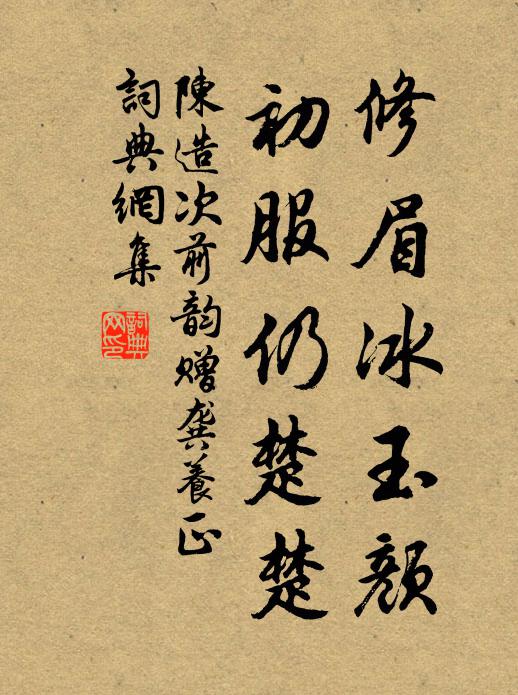 修眉冰玉顏
初服仍楚楚
陳造次前韵贈龔養正
詞典網集
詞典网印